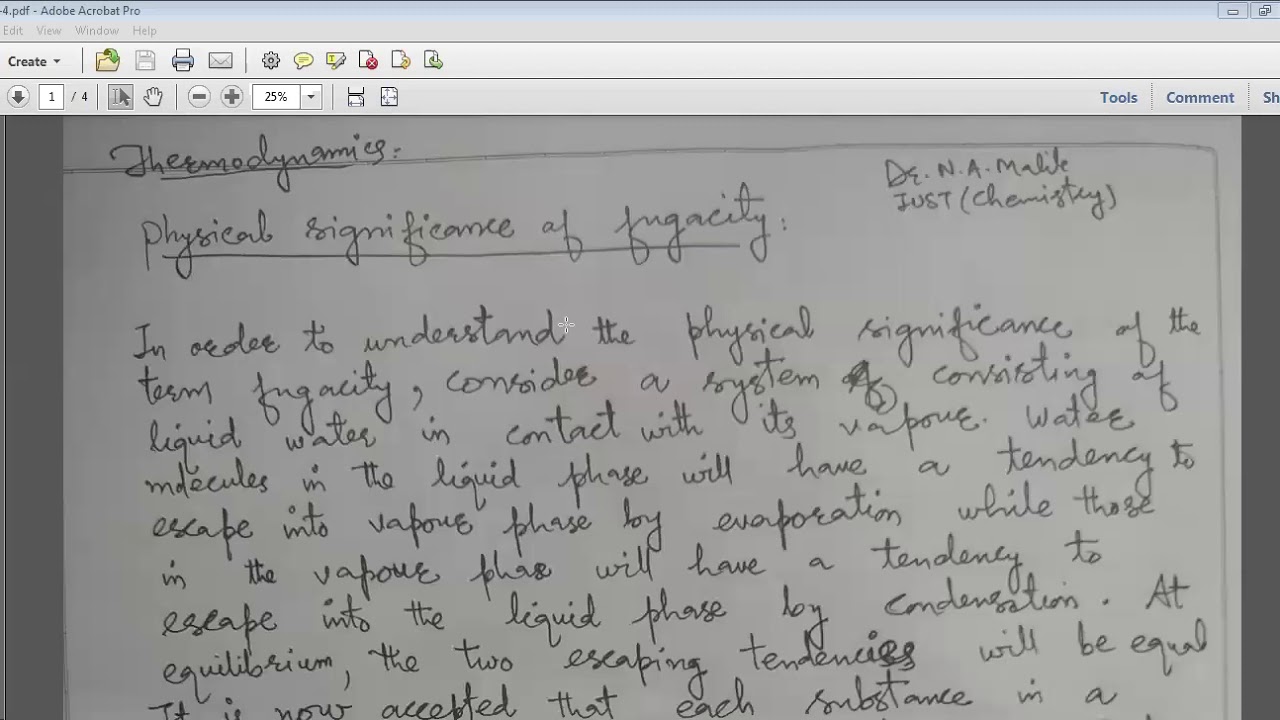 -4.pdf - Adobe Acrobat Pro
Edit View Window Help
Create
1 / 4 25% Tools Comment Sh
Thermodynamics:
Dr. N.A. Malik
JUST (Chemistry)
Physical significance of fugacity:
In order to understand the physical significance of the
term fugacity, consider a system consisting of
liquid water in contact with its vapour. Water
molecules in the liquid phase will have a tendency to
escape into vapour phase by evaporation while those
in the vapour phase will have a tendency to
escape into the liquid phase by condensation. At
equilibrium, the two escaping tendencies will be equal
It is now accepted that each substance in a